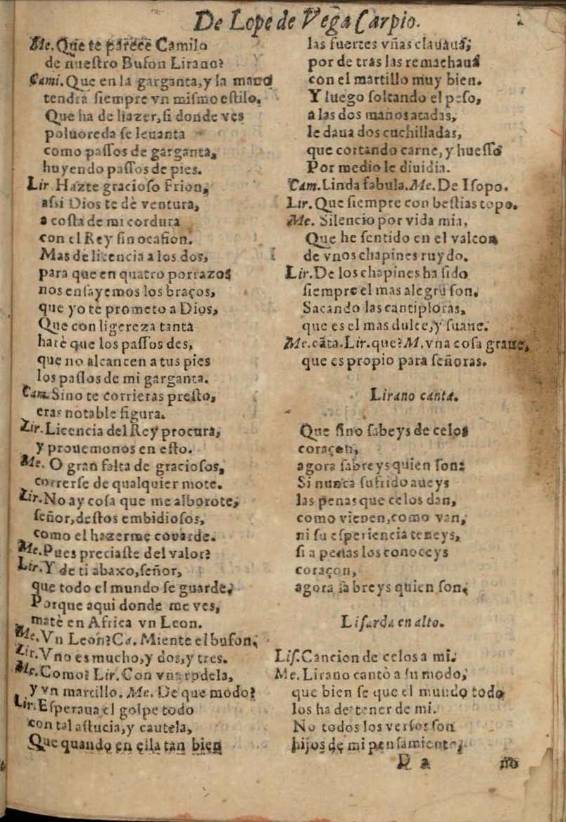 De Lope de Vega Carpio.
2
Me. Que te parece Camilo
de nuestro Bufon Lirano?
Cami. Que en la garganta, y la mano
tendrà siempre vn mismo estilo,
Que ha de hazer, si donde ves
poluoreda se leuanta
como passos de garganta,
huyendo passos de pies.
Lir. Hazte gracioso Frion,
assi Dios te dè ventura,
a costa de mi cordura
con el Rey sin ocasion.
Mas dè licencia a los dos,
para que en quatro porrazos
nos ensayemos los braços,
que yo te prometo a Dios,
Que con ligereza tanta
harè que los passos des,
que no alcancen a tus pies
los passos de mi garganta.
Cam. Sino te corrieras presto,
eras notable figura.
Lir. Licencia del Rey procura,
y prouemonos en esto.
Me. O gran falta de graciosos,
correrse de qualquier mote.
Lir. No ay cosa que me alborote,
señor, destos embidiosos,
como el hazerme couarde.
Me. Pues preciaste del valor?
Lir. Y de ti abaxo, señor,
que todo el mundo se guarde.
Porque aqui donde me ves,
matè en Africa vn Leon.
Me. Vn Leon? Ca. Miente el bufon.
Lir. Vno es mucho, y dos, y tres.
Me. Como? Lir. Con vna rodela,
y vn martillo. Me. De que modo?
Lir. Esperaua el golpe todo
con tal astucia, y cautela,
Que quando en ella tan bien
las fuertes vñas clauaua,
por de tras las remachaua
con el martillo muy bien.
Y luego soltando el peso,
a las dos manos atadas,
le daua dos cuchilladas,
que cortando carne, y huesso
Por medio le diuidia.
Cam. Linda fabula. Me. De Isopo.
Lir. Que siempre con bestias topo.
Me. Silencio por vida mia,
Que he sentido en el valcon
de vnos chapines ruydo.
Lir. De los chapines ha sido
siempre el mas alegre son.
Sacando las cantiploras,
que es el mas dulce, y suaue.
Me. cãta. Lir. que? M. vna cosa graue,
que es propio para señoras.
Lirano canta.
Que sino sabeys de celos
coraçon,
agora sabreys quien son:
Si nunca sufrido aueys
las penas que celos dan,
como vienen, como van,
ni su esperiencia teneys,
si a penas los conoceys
coraçon,
agora sabreys quien son.
Lisarda en alto.
Lis. Cancion de celos a mi.
Me. Lirano cantò a su modo,
que bien se que el mundo todo
los ha de tener de mi.
No todos los versos son
hijos de mi pensamiento,
no